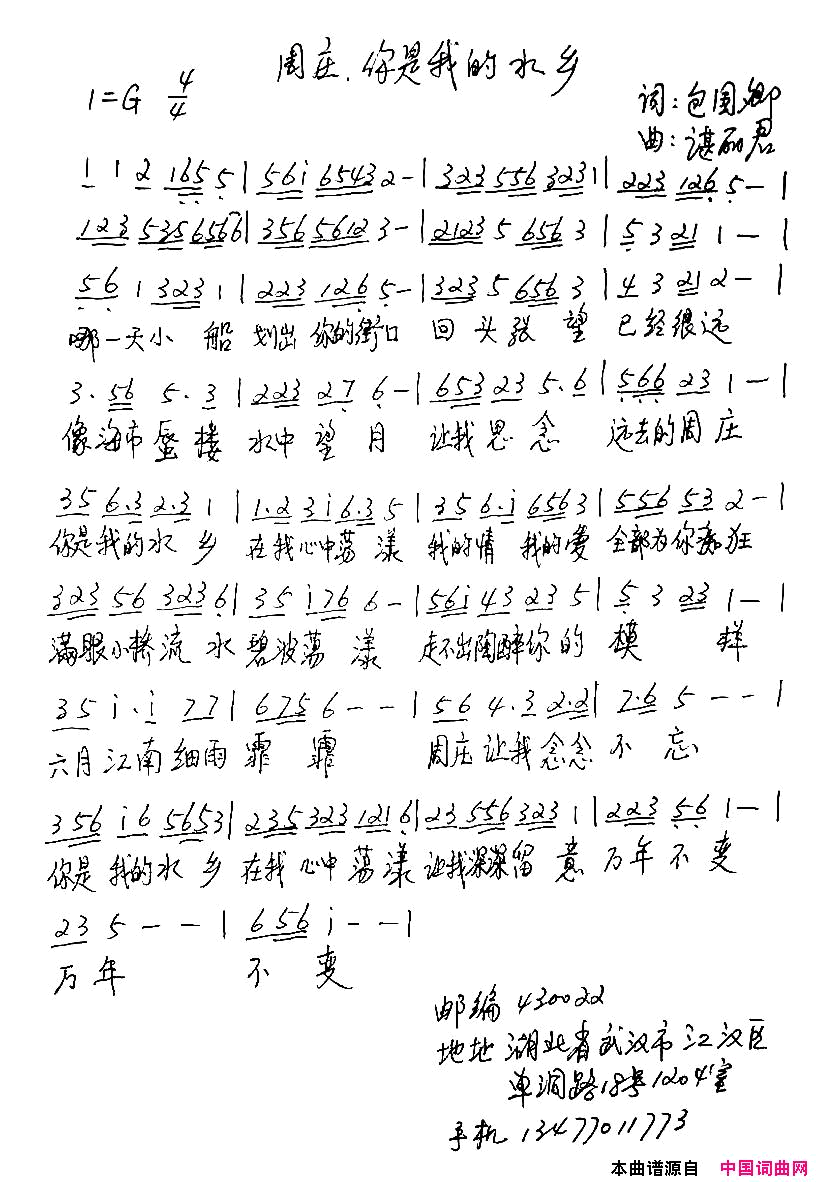 周庄,你是我的水乡
1=G 4/4
词:包国卿
曲:谌丽君
1 1 2 165 5 | 561̇ 6543 2 - | 323 556 323 1 | 223 126 5 - |
123 535 656 6 | 356 5612 3 - | 2123 5 656 3 | 5 3 21 1 - |
56 1 323 1 | 223 126 5 - | 323 5 656 3 | 4 3 21 2 - |
哪一天小船 划出你的街口 回头张望 已经很远
3. 56 5. 3 | 223 27 6 - | 653 23 5. 6 | 566 23 1 - |
像海市蜃楼 水中望月 让我思念 远去的周庄
35 6.3 2.3 1 | 1.2 3i 6.3 5 | 35 6.i 656 3 | 556 53 2 - |
你是我的水乡 在我心中荡漾 我的情 我的爱 全部为你痴狂
323 56 323 6 | 35 i76 6 - | 56i 43 23 5 | 5 3 23 1 - |
满眼小桥流水 碧波荡漾 走不出陶醉你的模样
35 i. i 77 | 675 6 - - | 56 4.3 2.2 | 7.6 5 - - |
六月江南细雨霏霏 周庄让我念念不忘
356 i6 5653 | 235 323 121 6 | 23 556 323 1 | 223 56 1 - |
你是我的水乡 在我心中荡漾 让我深深留意 万年不变
23 5 - - | 656 i - - |
万年 不变
邮编 430022
地址 湖北省武汉市江汉区
单洞路18号1204室
手机 13477011773
本曲谱源自 中国词曲网